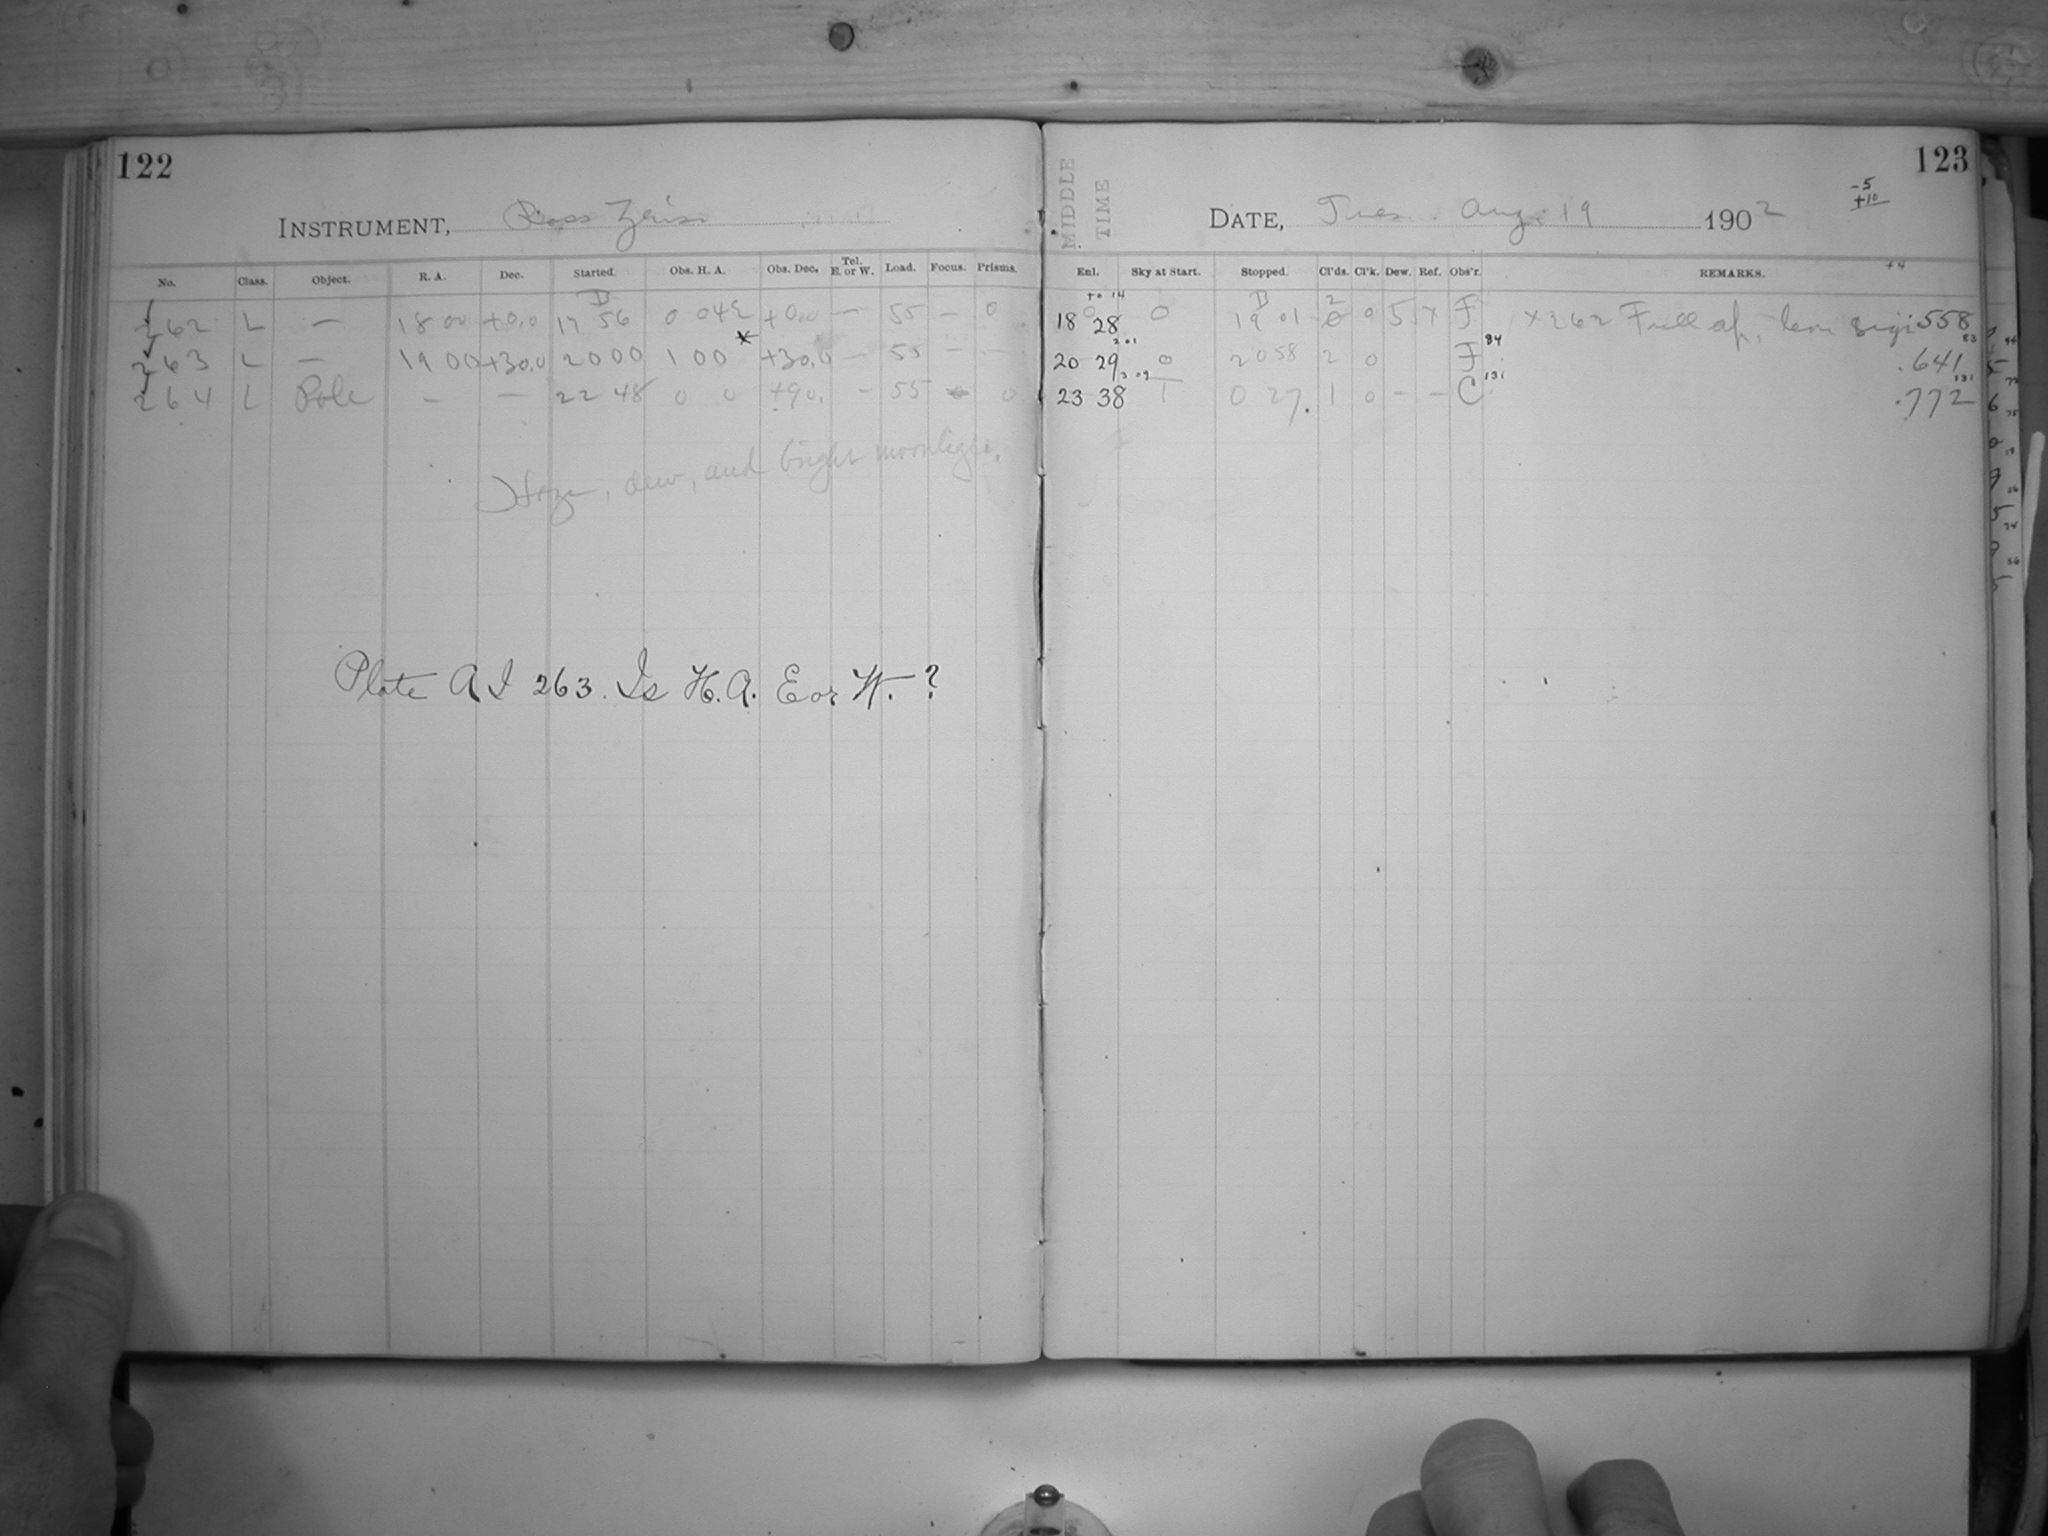 122
INSTRUMENT, Ross Zeiss
No. Class. Object. R. A. Dec. Started. Obs. H. A. Obs. Dec. Tel. E. or W. Load. Focus. Prisms.
262 L — 18 00 +0.0 17 56 0 04E +0.0 — 55 — 0
263 L — 19 00 +30.0 20 00 1 00 * +30.0 — 55 — —
264 L Pole — — 22 48 0 0 +90. — 55 0
Haze, dew, and bright moonlight.
Plate A I 263. Is H.A. E or W. ?
MIDDLE TIME
123
DATE, Tues. Aug. 19 1902
-5
+10
Enl. Sky at Start. Stopped. Cl'ds. Cl'k. Dew. Ref. Obs'r. REMARKS. +4
18 28 0 19 01 2 0 5 x F x262 Full ap, .558
20 29 0 20 58 2 0 F 84 83 .641
23 38 1 0 27. 1 0 - - C 131 131 .772